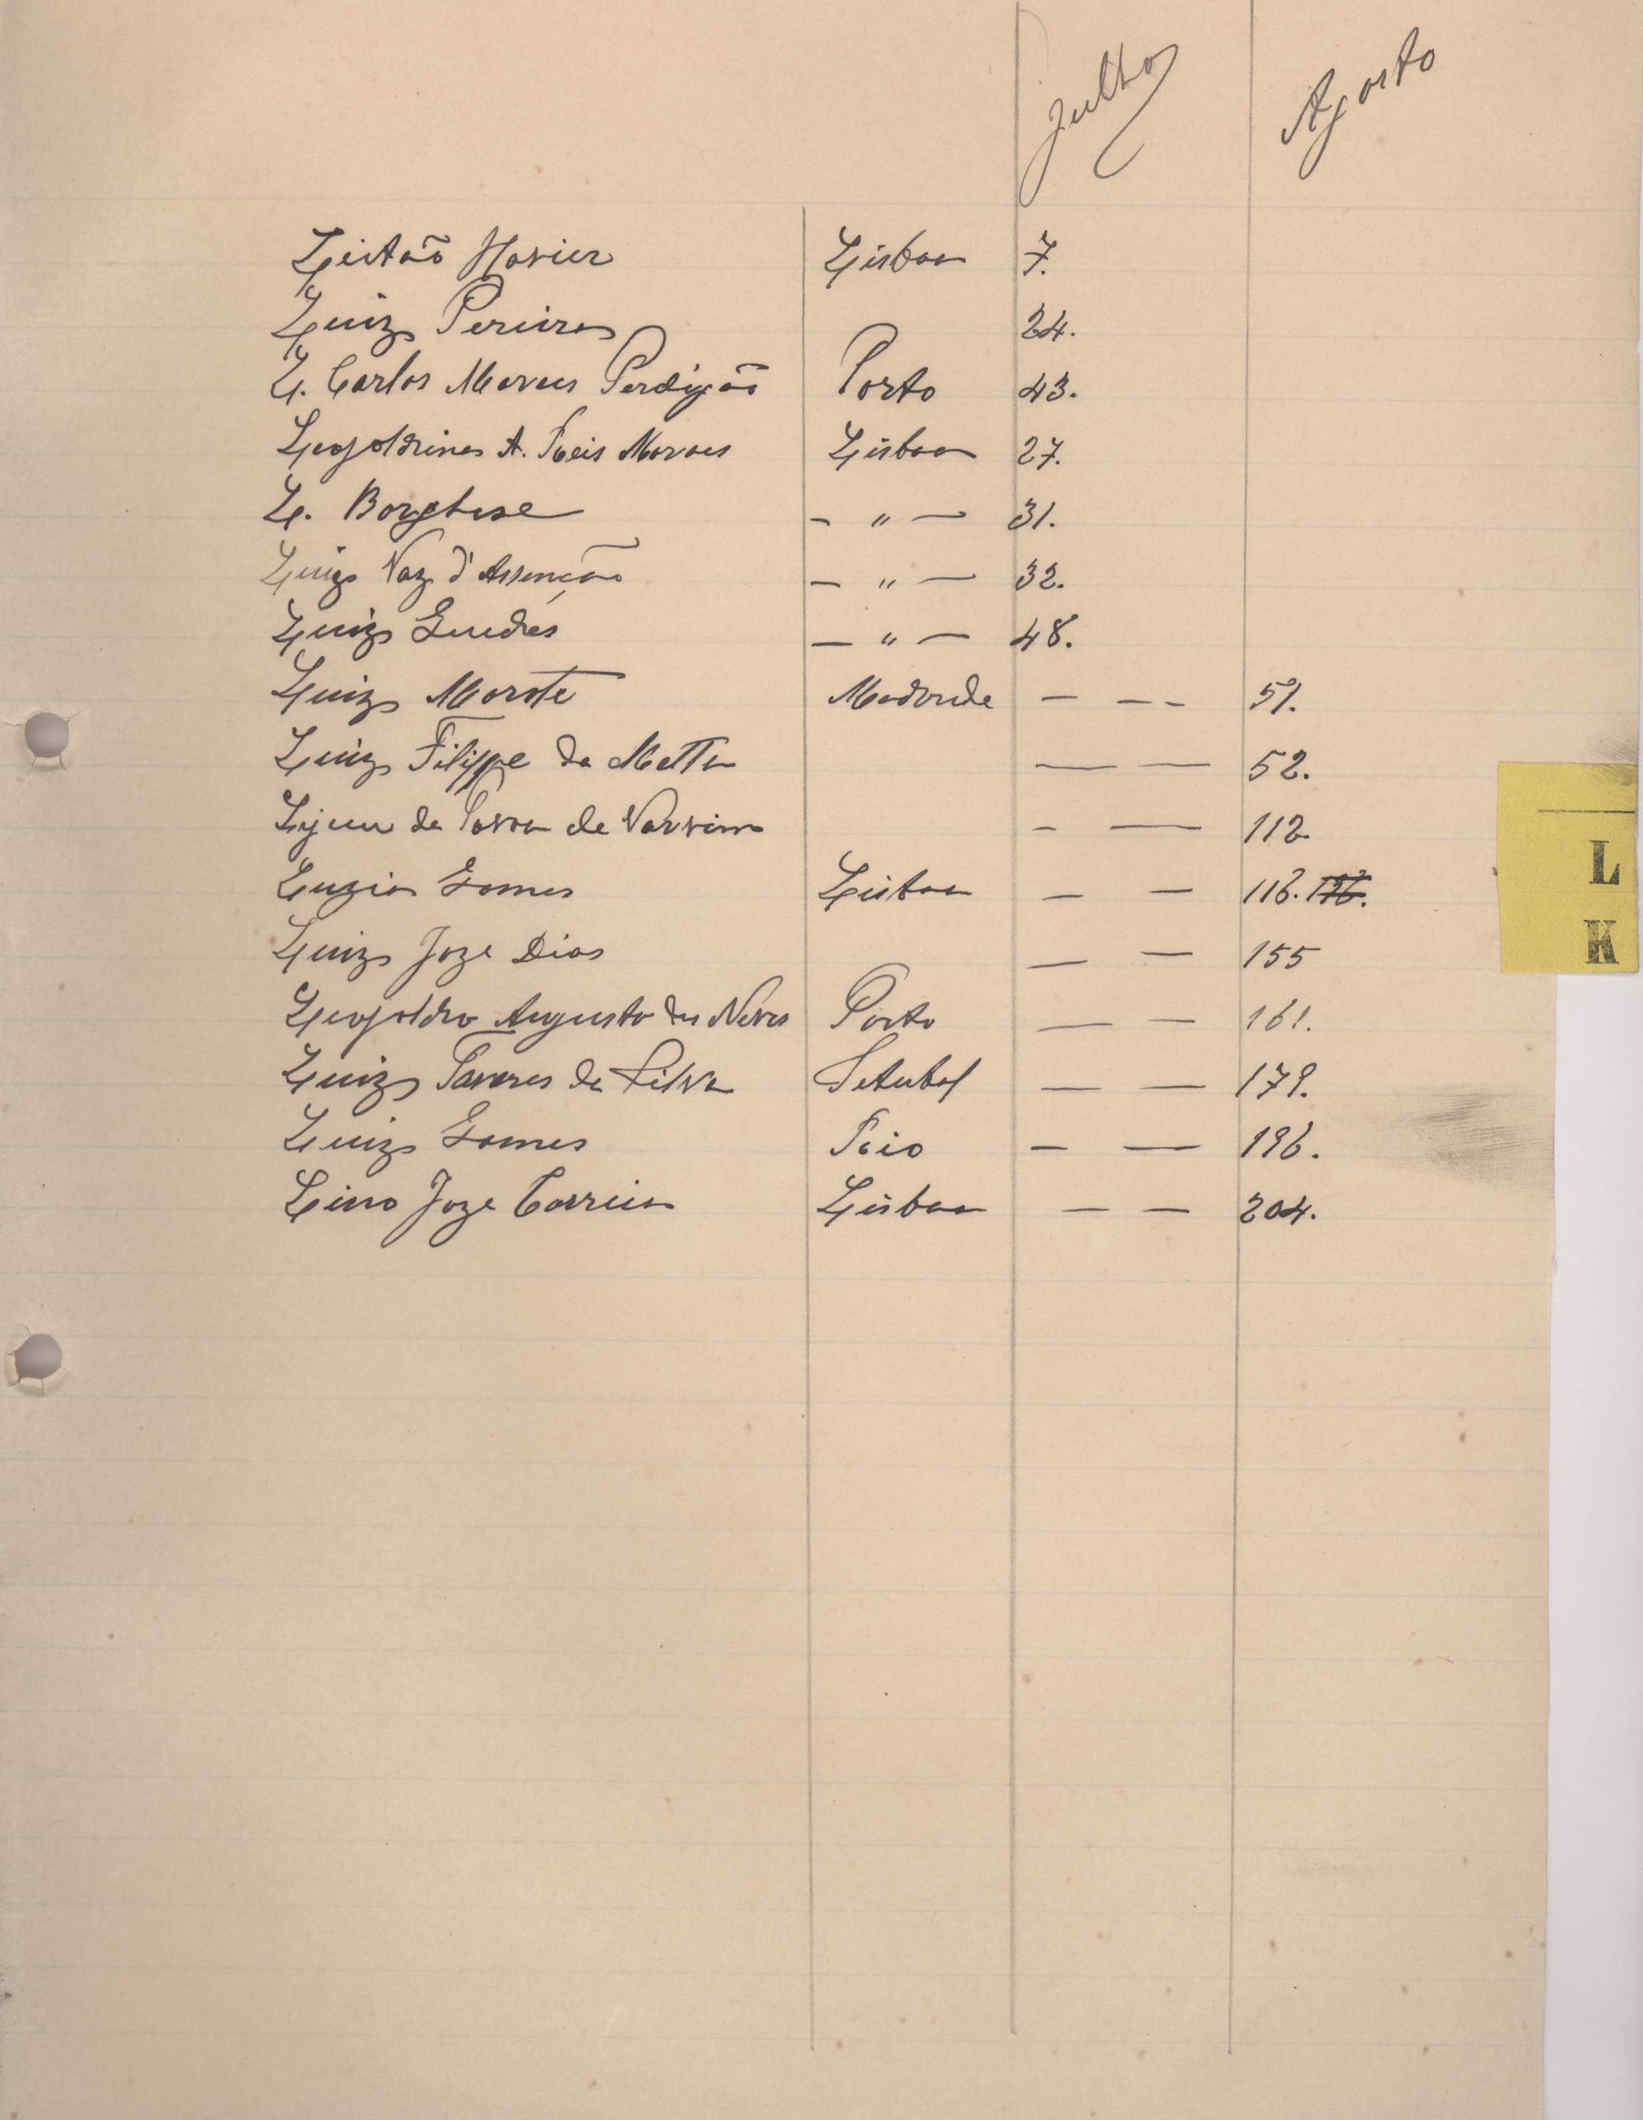 Julho Agosto
Leitão Xavier Lisboa 7.
Luiz Pereira 24.
L. Carlos Moraes Perdigão Porto 43.
Leopoldina A. Reis Moraes Lisboa 27.
L. Borghese - " - 31.
Luiz Vaz d'Assenção - " - 32.
Luiz Guedes - " - 48.
Luiz Morote - - - 51.
Luiz Filippe da Matta - - 52.
Lyceu da Povoa de Varzim - - 112
Luzia Gomes Lisboa - - 116.
Luiz Joze Dias - - 155
Leopoldo Augusto das Neves Porto - - 161.
Luiz Tavares da Silva Setubal - - 179.
Luiz Gomes Rio - - 196.
Lino Joze Correia Lisboa - - 204.
L
K